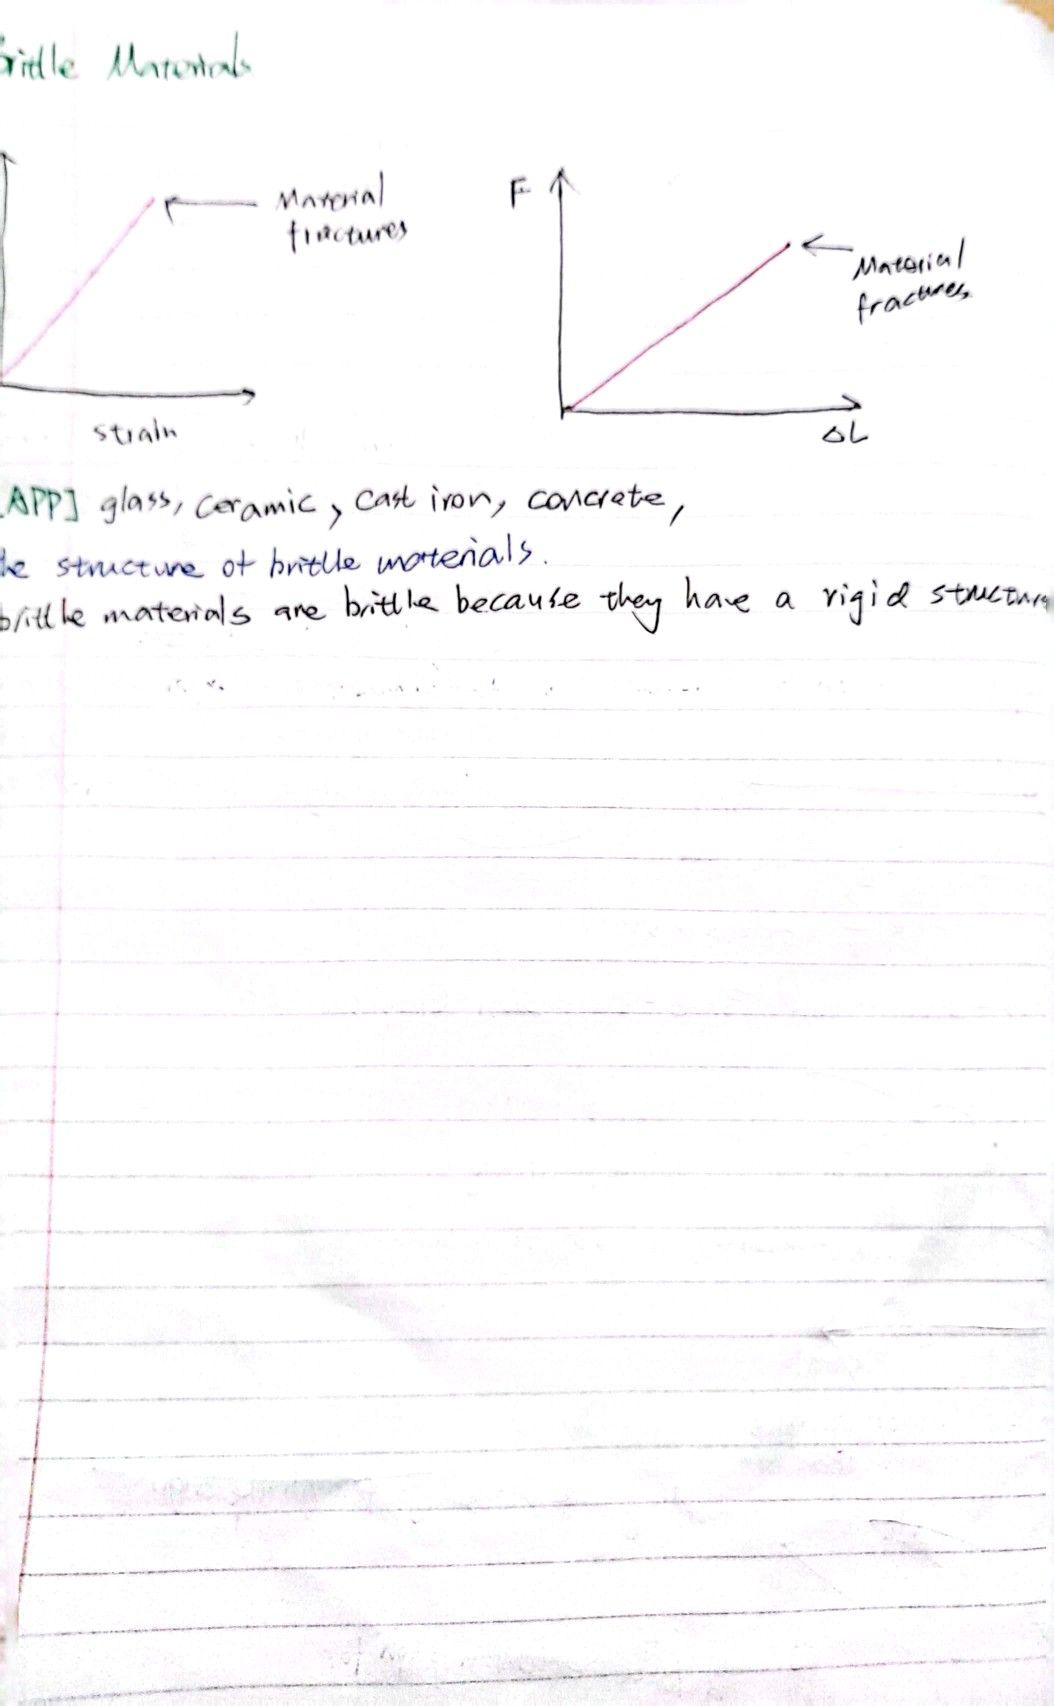 Brittle Materials
Material
fractures
F
Material
fractures
strain
ΔL
[APP] glass, ceramic, cast iron, concrete,
the structure of brittle materials.
brittle materials are brittle because they have a rigid structure